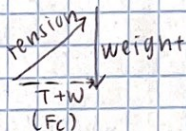 tension
weight
T+W
(Fc)